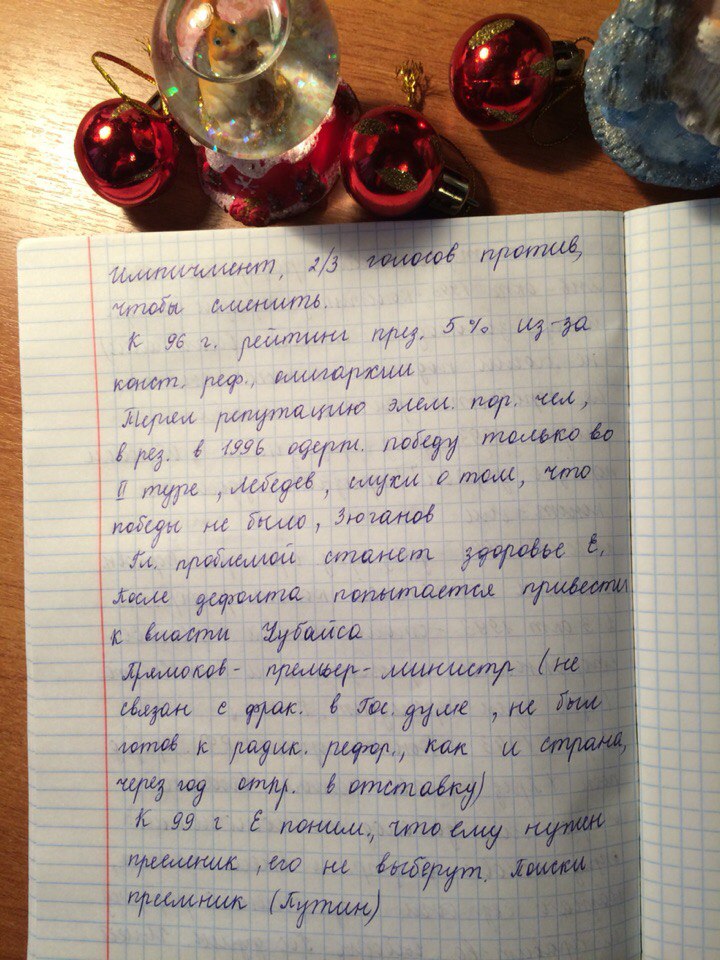 Импичмент, 2/3 голосов против,
чтобы сменить.
К 96 г. рейтинг през. 5% из-за
конст. реф., олигархии
Терял репутацию элем. пор. чел,
в рез. в 1996 одерж. победу только во
II туре, Лебедев, слухи о том, что
победы не было, Зюганов
Гл. проблемой станет здоровье Е,
После дефолта попытается привести
к власти Чубайса
Прямоков - премьер-министр (не
связан с фрак. в Гос. думе, не был
готов к радик. рефор., как и страна,
через год отпр. в отставку)
К 99 г Е поним., что ему нужен
преемник, его не выберут. Поиски
преемник (Путин)